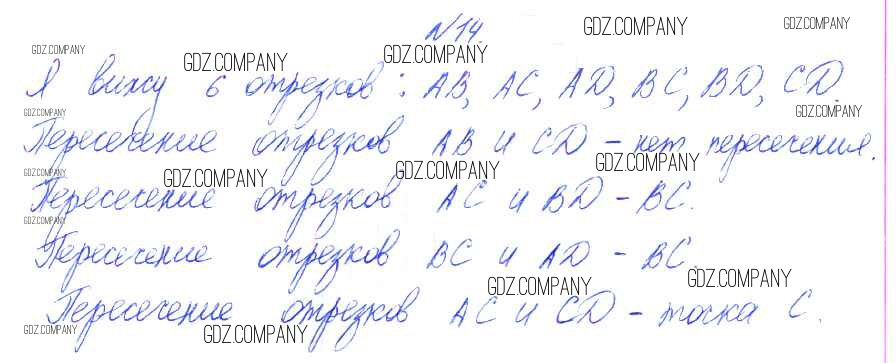 №14.
GDZ.COMPANY GDZ.COMPANY
GDZ.COMPANY GDZ.COMPANY GDZ.COMPANY
Я вижу 6 отрезков: AB, AC, AD, BC, BD, CD.
GDZ.COMPANY GDZ.COMPANY
Пересечение отрезков AB и CD – нет пересечения.
GDZ.COMPANY GDZ.COMPANY GDZ.COMPANY GDZ.COMPANY
Пересечение отрезков AC и BD – BC.
GDZ.COMPANY
Пересечение отрезков BC и AD – BC.
GDZ.COMPANY GDZ.COMPANY
Пересечение отрезков AC и CD – точка C.
GDZ.COMPANY GDZ.COMPANY